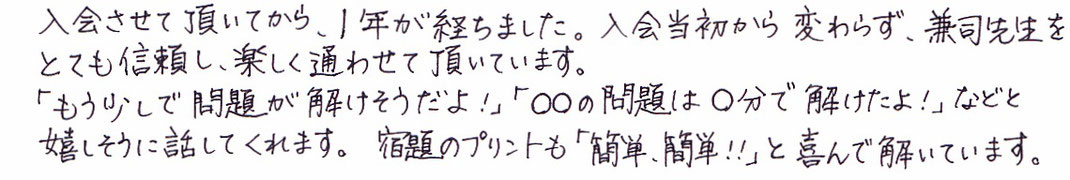 入会させて頂いてから、1年が経ちました。入会当初から変わらず、兼司先生を
とても信頼し、楽しく通わせて頂いています。
「もう少しで問題が解けそうだよ!」「○○の問題は○分で解けたよ!」などと
嬉しそうに話してくれます。宿題のプリントも「簡単、簡単!!」と喜んで解いています。